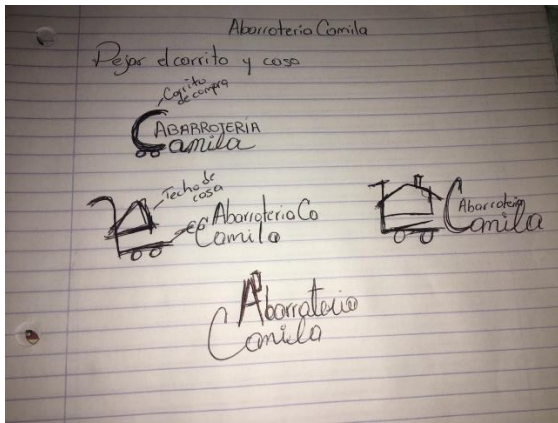 Abarroteria Camila
Dejar el carrito y casa
Carrito
de compra
ABARROTERÍA
Camila
Techo de
casa
Abarroteria Co
Camila
Abarroteria
Camila
Abarroteria
Camila